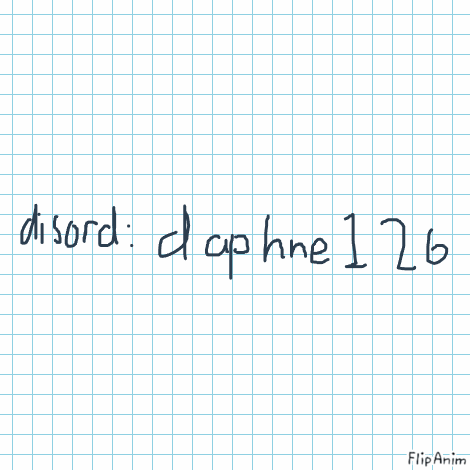 disord: daphne126
FlipAnim